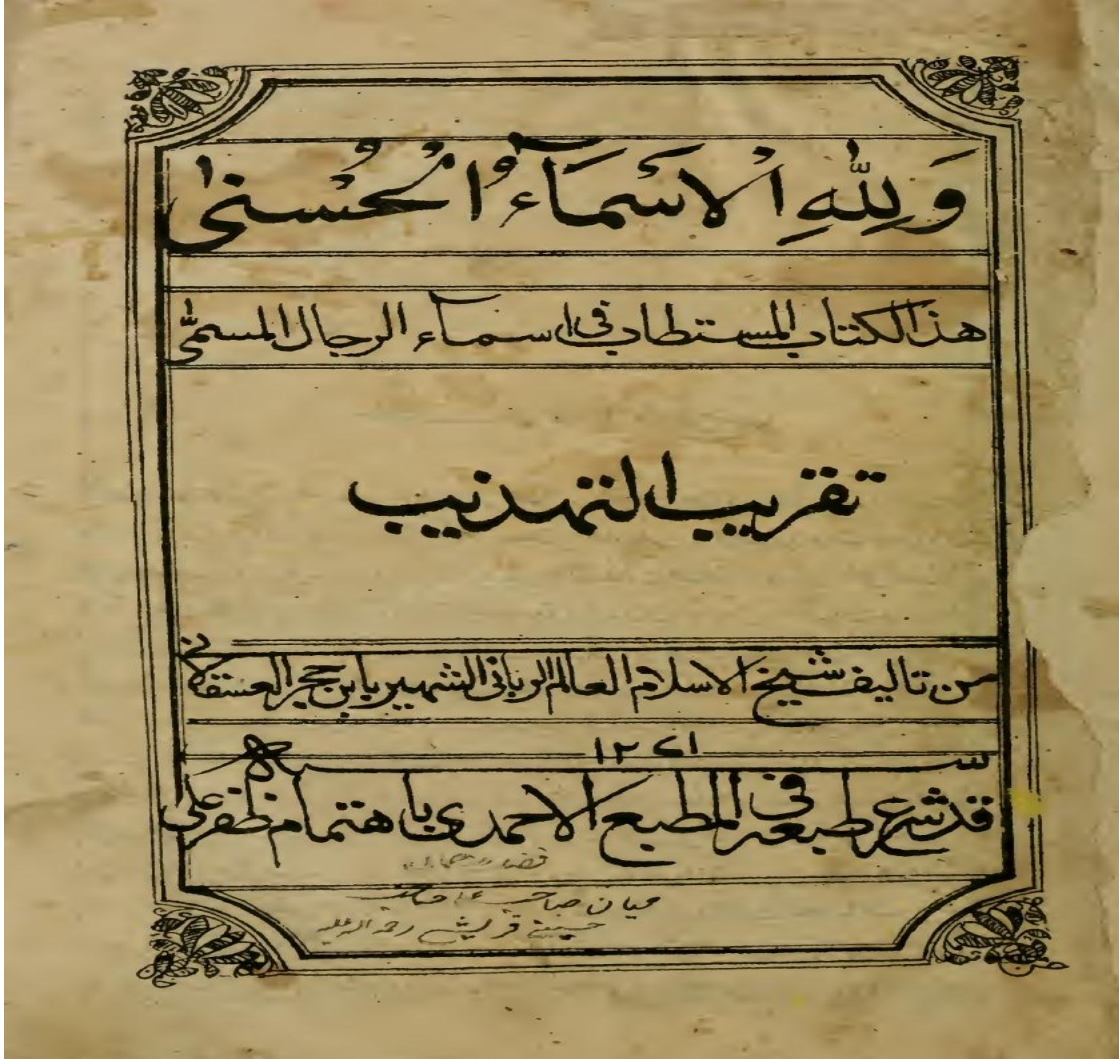 وَلِلّٰهِ الْاَسْمَآءُ الْحُسْنٰى
هذا الكتاب المستطاب فى اسمآء الرجال المسمّى
تقريب التهذيب
من تاليف شيخ الاسلام العالم الربانى الشهير بابن حجر العسقلانى
سنة ١٢٧١
قد شرع طبعه فى المطبع الاحمدى باهتمام ظفر على
ميان صاحب
قريشى رحمة الله عليه